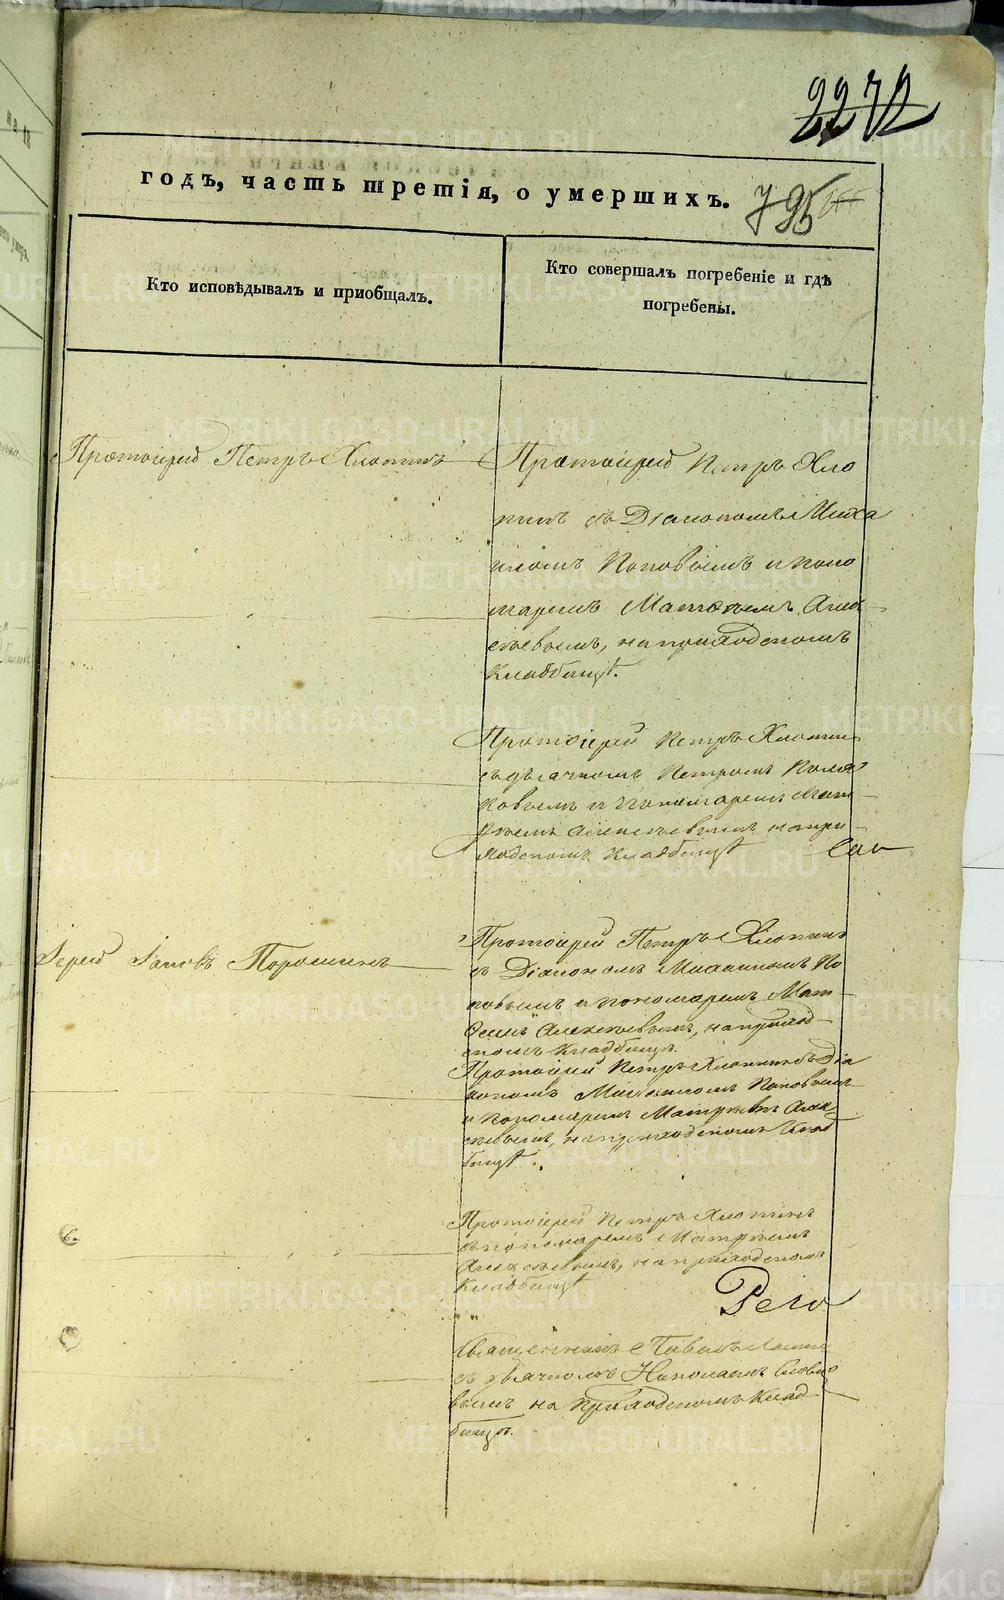 2272
годъ, часть третія, о умершихъ. 795
Кто исповѣдывалъ и пріобщалъ.
Кто совершалъ погребеніе и гдѣ
погребены.
Протоіерей Петръ Хлопинъ
Протоіерей Петръ Хло
пинъ съ Діакономъ Миха
иломъ Поповымъ и поно
маремъ Матѳеемъ Алек
сѣевымъ, на приходскомъ
Кладбищѣ.
Протоіерей Петръ Хлопинъ
съ дьячкомъ Петромъ
и пономаремъ Мат
ѳеемъ Алексѣевымъ на при
ходскомъ Кладбищѣ
Іерей Іаковъ Порошинъ
Протоіерей Петръ Хлопинъ
съ Діакономъ Михаиломъ По
повымъ и пономаремъ Мат
ѳеемъ Алексѣевымъ, на приход
скомъ Кладбищѣ.
Протоіерей Петръ Хлопинъ съ Діа
кономъ Михаиломъ Поповымъ
и пономаремъ Матѳѣемъ Алек
сѣевымъ, на приходскомъ Клад
бищѣ.
Протоіерей Петръ Хлопинъ
съ пономаремъ Матѳѣемъ
Алексѣевымъ, на приходскомъ
Кладбищѣ
Священникъ Павелъ
съ дьячкомъ Николаемъ
вымъ на Приходскомъ Клад
бищѣ.
METRIKI.GASO-URAL.RU